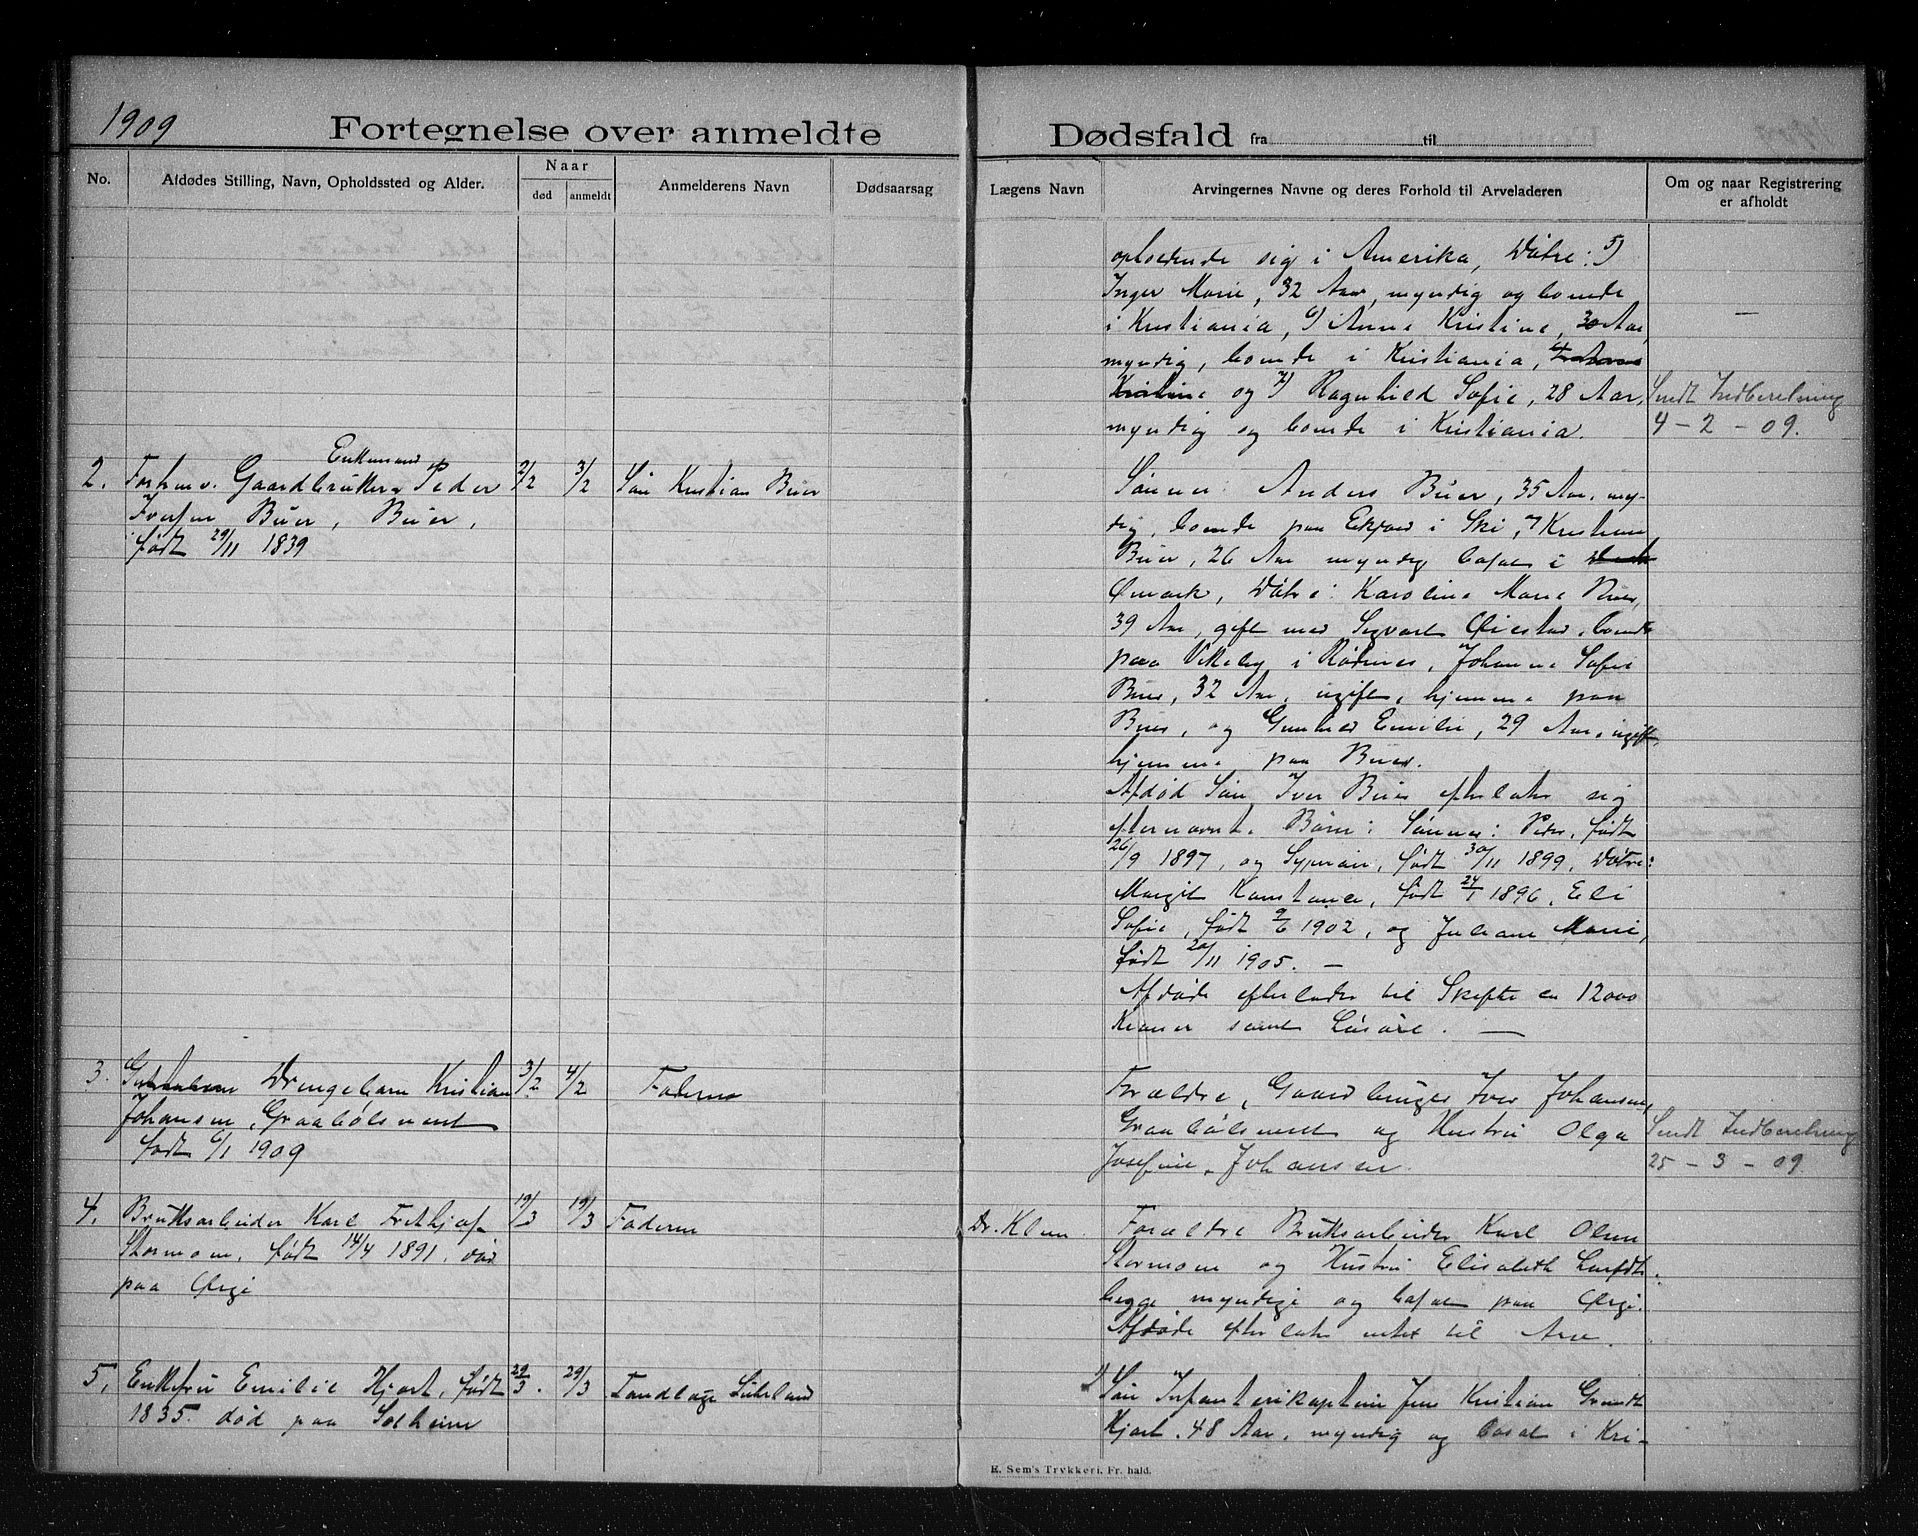 1909
Fortegnelse over anmeldte
Dødsfald fra til
No.
Afdødes Stilling, Navn, Opholdssted og Alder.
Naar
død
anmeldt
Anmelderens Navn
Dødsaarsag
Lægens Navn
Arvingernes Navne og deres Forhold til Arveladeren
Om og naar Registrering
er afholdt
opholdende sig i Amerika, Døtre: 5)
Inger Marie, 32 Aar, myndig og boende
i Kristiania, 6) Anne Kristine, 30 Aar,
myndig, boende i Kristiania,
Kristine og 7) Ragnhild Sofie, 28 Aar,
myndig og boende i Kristiania.
—
Sendt Indberetning
4 - 2 - 09.
Enkemand
2. Forhenv. Gaardbruker Peder 2/2 3/2 Søn Kristian Buer
Iversen Buer, Buer,
født 29/11 1839
Sønner: Anders Buer, 35 Aar, myn-
dig, boende paa i Ski, Kristian
Buer, 26 Aar myndig bosat i
Ømark, Døtre: Karoline Marie Buer,
39 Aar, gift med Sigvart Øiestad, boende
paa Vikeby i Rødenes, Johanne Sofie
Buer, 32 Aar, ugift, hjemme paa
Buer, og Gunhild Emilie, 29 Aar, ugift,
hjemme paa Buer.
Afdød Søn Iver Buer efterlater sig
efternævnte Børn: Sønner: Peder, født
26/9 1897, og født 30/11 1899, Døtre:
Margit Konstance, født 24/1 1896, Eli
Sofie, født 9/6 1902, og Juliane Marie,
født 20/11 1905. —
Afdøde efterlader til Skifte ca 12000
Kroner samt Løsøre. —
3. Drengebarn Kristian 3/2 4/2 Faderen
Johansen, Graabølsmert
født 6/1 1909
Forældre, Gaardbruger Iver Johansen,
Graabølsmert og Hustru Olga
Josefine Johansen.
Sendt Indberetning
25 - 3 - 09
4. Bruksarbeider Karl Frithjof 19/3 19/3 Faderen Dr. Klem
Stormoen, født 14/4 1891, død
paa Ørje
Forældre Bruksarbeider Karl Olsen
Stormoen og Hustru Elisabeth
begge myndige og bosat paa Ørje.
Afdøde efterlater intet til Arv
5, Enkefru Emilie Hjort, født 29/3. 29/3 Tandlæge
1835. død paa Solheim
1) Søn Infanterikaptein Jens Kristian Grundt
Hjort, 48 Aar, myndig og bosat i Kri-
E. Sem's Trykkeri. Fr. hald.